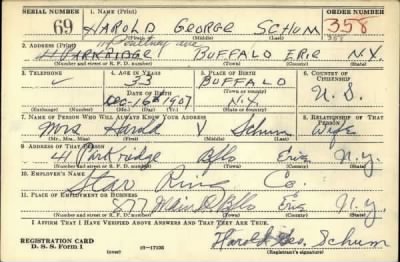 SERIAL NUMBER 1. NAME (Print) ORDER NUMBER
69 HAROLD GEORGE SCHUM 358
(First) (Middle) (Last) 358
2. ADDRESS (Print) ave
41 PARKRIDGE BUFFALO ERIE N.Y.
(Number and street or R. F. D. number) (Town) (County) (State)
3. TELEPHONE 4. AGE IN YEARS 5. PLACE OF BIRTH 6. COUNTRY OF CITIZENSHIP
33 BUFFALO
DATE OF BIRTH (Town or county)
DEC-16 1907 N.Y. U.S.
(Exchange) (Number) (Mo.) (Day) (Yr.) (State or country)
7. NAME OF PERSON WHO WILL ALWAYS KNOW YOUR ADDRESS 8. RELATIONSHIP OF THAT PERSON
Mrs Harold V Schum Wife
(Mr., Mrs., Miss) (First) (Middle) (Last)
9. ADDRESS OF THAT PERSON
41 Parkridge Bflo Erie N.Y.
(Number and street or R. F. D. number) (Town) (County) (State)
10. EMPLOYER'S NAME
Star Ring Co.
11. PLACE OF EMPLOYMENT OR BUSINESS
877 Main St Bflo Erie N.Y.
(Number and street or R. F. D. number) (Town) (County) (State)
I AFFIRM THAT I HAVE VERIFIED ABOVE ANSWERS AND THAT THEY ARE TRUE.
REGISTRATION CARD
D. S. S. Form 1 (over) 16-17105 Harold Geo. Schum
(Registrant's signature)